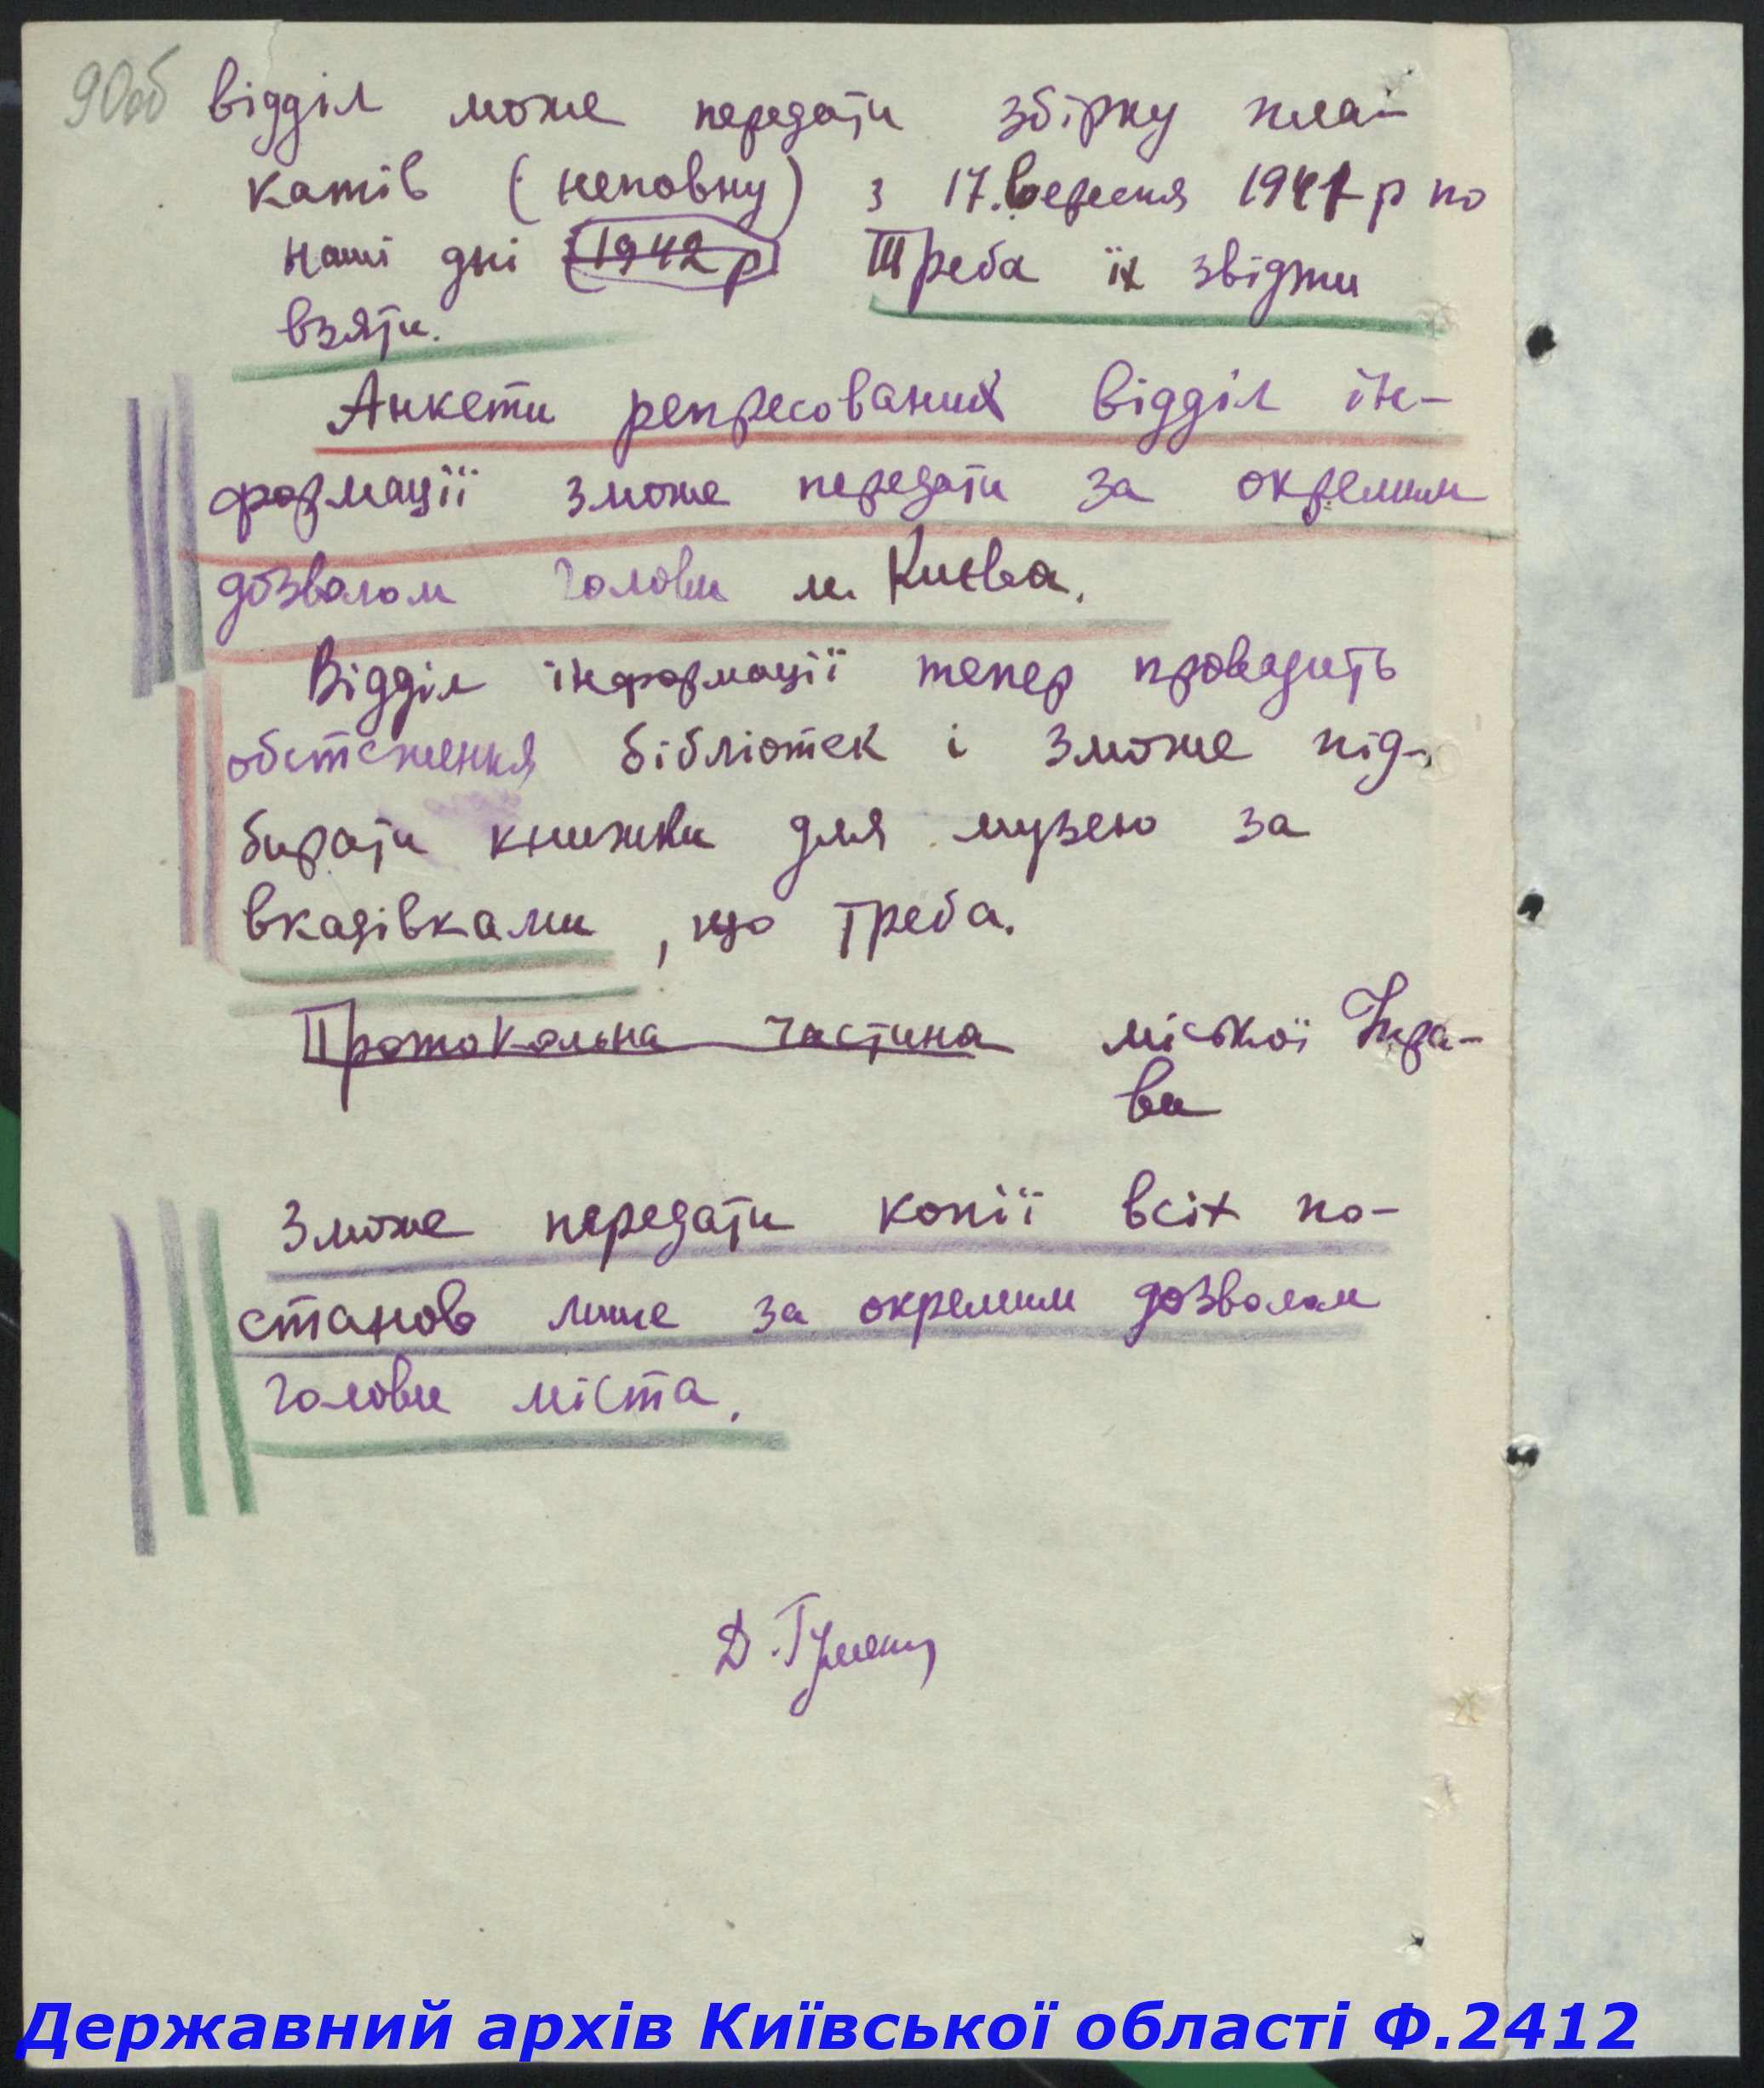 90об
відділ може передати збірку пла-
катів (неповну) з 17.вересня 1941 р по
наші дні (1942 р) Треба їх звідти
взяти.
Анкети репресованих відділ ін-
формації зможе передати за окремим
дозволом голови м. Києва.
Відділ інформації тепер проводить
обстеження бібліотек і зможе під-
бирати книжки для музею за
вказівками, що треба.
Протокольна частина міської Упра-
ви
Зможе передати копії всіх по-
станов лише за окремим дозволом
голови міста.
Д.
Державний архів Київської області Ф.2412